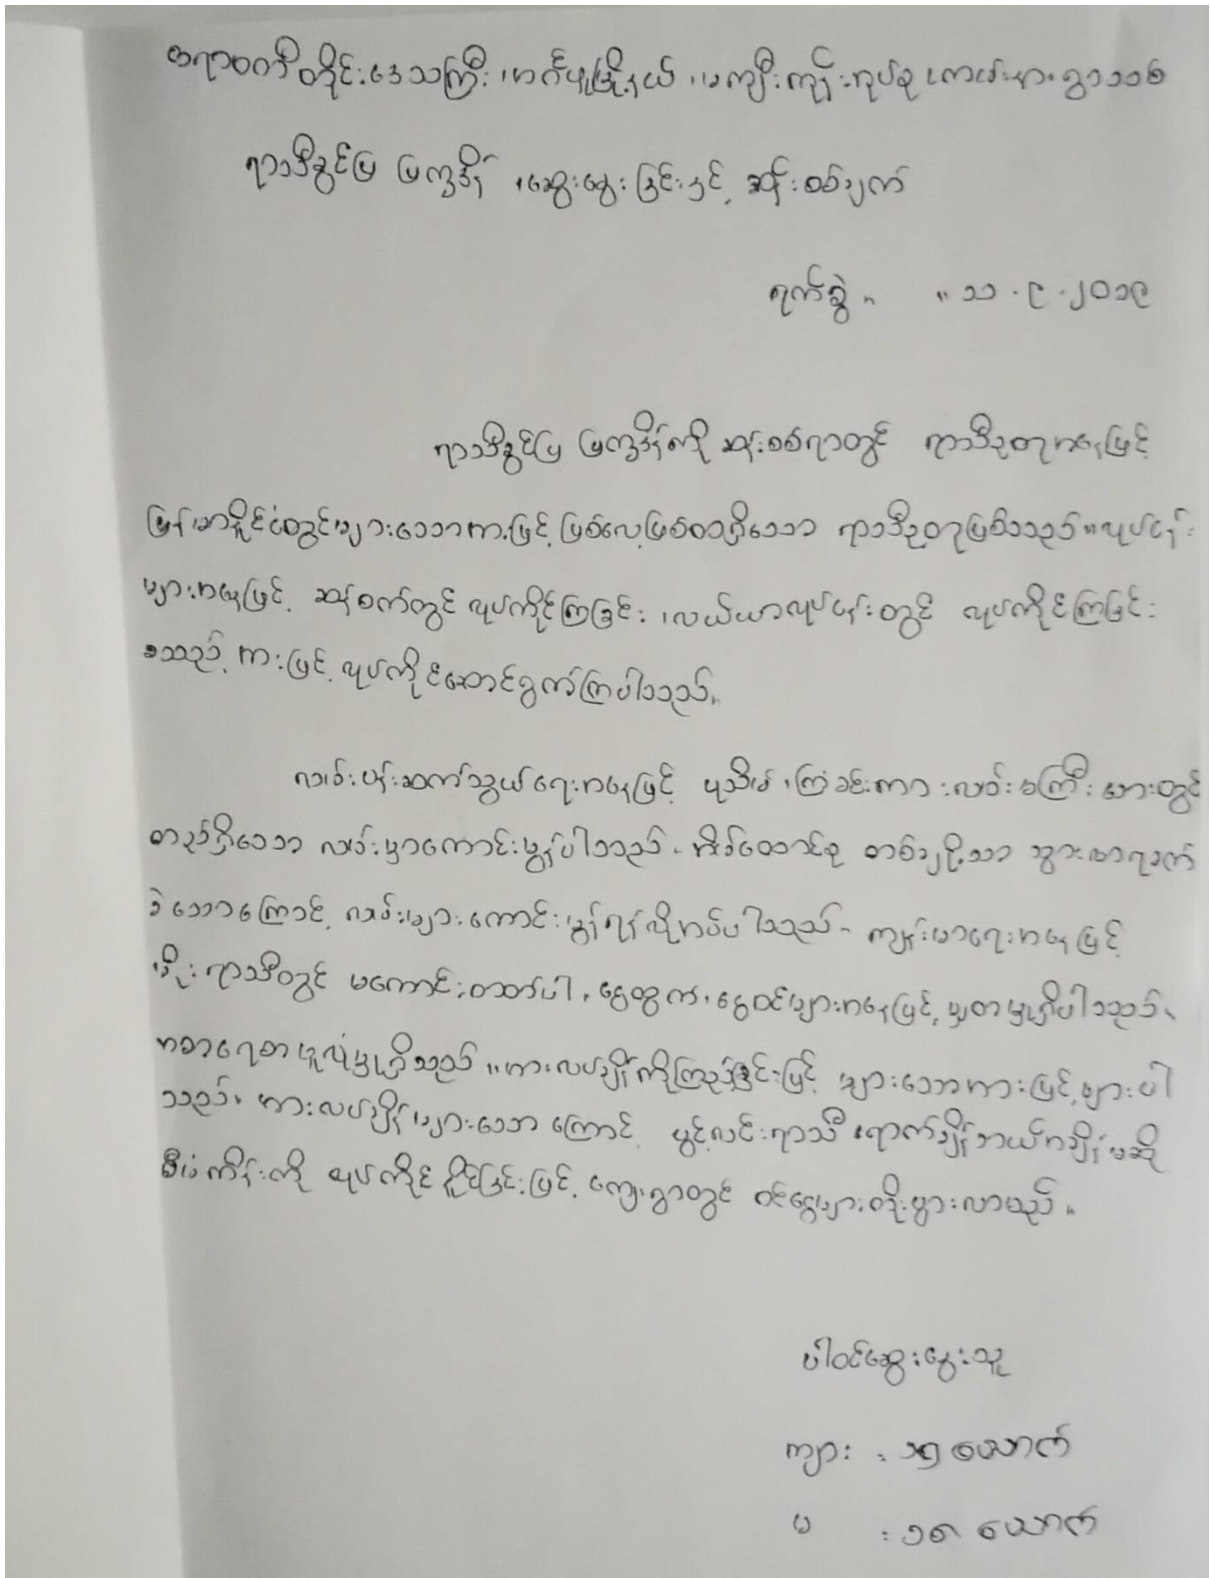 ဧရာဝတီတိုင်းဒေသကြီး၊ အင်္ဂပူမြို့နယ်၊ မကျီးကုန်းအုပ်စု ရွာသစ်
ရာသီခွင်ပြ ပြက္ခဒိန် ၊ဆွေးနွေးခြင်းနှင့် ဆန်းစစ်ချက်
ရက်စွဲ ။ ။ ၁၁.၉.၂၀၁၉
ရာသီခွင်ပြ ပြက္ခဒိန်ကို ဆန်းစစ်ရာတွင် ရာသီဥတုအနေဖြင့်
မြန်မာနိုင်ငံတွင်များသောအားဖြင့် ဖြစ်လေ့ဖြစ်ထရှိသော ရာသီဥတုဖြစ်သည်။လုပ်ငန်း
များအနေဖြင့် ဆန်စက်တွင် လုပ်ကိုင်ကြခြင်း ၊လယ်ယာလုပ်ငန်းတွင် လုပ်ကိုင်ကြခြင်း
စသည့် အားဖြင့် လုပ်ကိုင်ဆောင်ရွက်ကြပါသည်။
လမ်းပန်းဆက်သွယ်ရေးအနေဖြင့် ပုသိမ် ၊ကြံခင်းကားလမ်းမကြီး ဘေးတွင်
တည်ရှိသော လမ်းမှာကောင်းမွန်ပါသည်။ အိမ်ထောင်စု တစ်ချို့သာ သွားလာရခက်
ခဲသောကြောင့် လမ်းများကောင်းမွန်ရန်လိုအပ်ပါသည်။ ကျန်းမာရေးအနေဖြင့်
မိုးရာသီတွင် မကောင်းတတ်ပါ၊ ငွေထွက်၊ ငွေဝင်များအနေဖြင့် မျှတမှုရှိပါသည်။
အစာရေစာဖူလုံမှုရှိသည်။အားလပ်ချိန်ကိုကြည့်ခြင်းဖြင့် များသောအားဖြင့်များပါ
သည်။ အားလပ်ချိန်များသော ကြောင့် ပွင့်လင်းရာသီ ရောက်ချိန်ဘယ်အချိန်မဆို
စီမံကိန်းကို လုပ်ကိုင်နိုင်ခြင်းဖြင့် ကျေးရွာတွင် ဝင်ငွေများတိုးပွားလာမည်။
ပါဝင်ဆွေးနွေးသူ
ကျား : ၁၅ ယောက်
မ : ၁၈ ယောက်